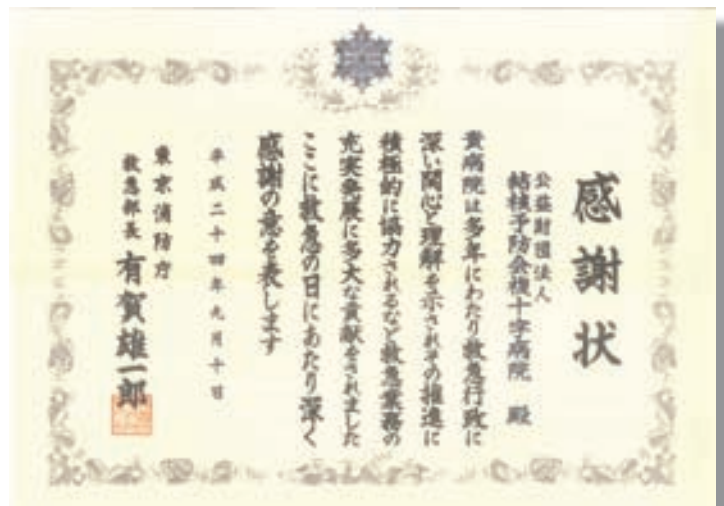 感謝状
公益財団法人
結核予防会複十字病院 殿
貴病院は多年にわたり救急行政に
深い関心と理解を示されその推進に
積極的に協力されるなど救急業務の
充実発展に多大な貢献をされました
ここに救急の日にあたり深く
感謝の意を表します
平成二十四年九月十日
東京消防庁
救急部長 有賀雄一郎